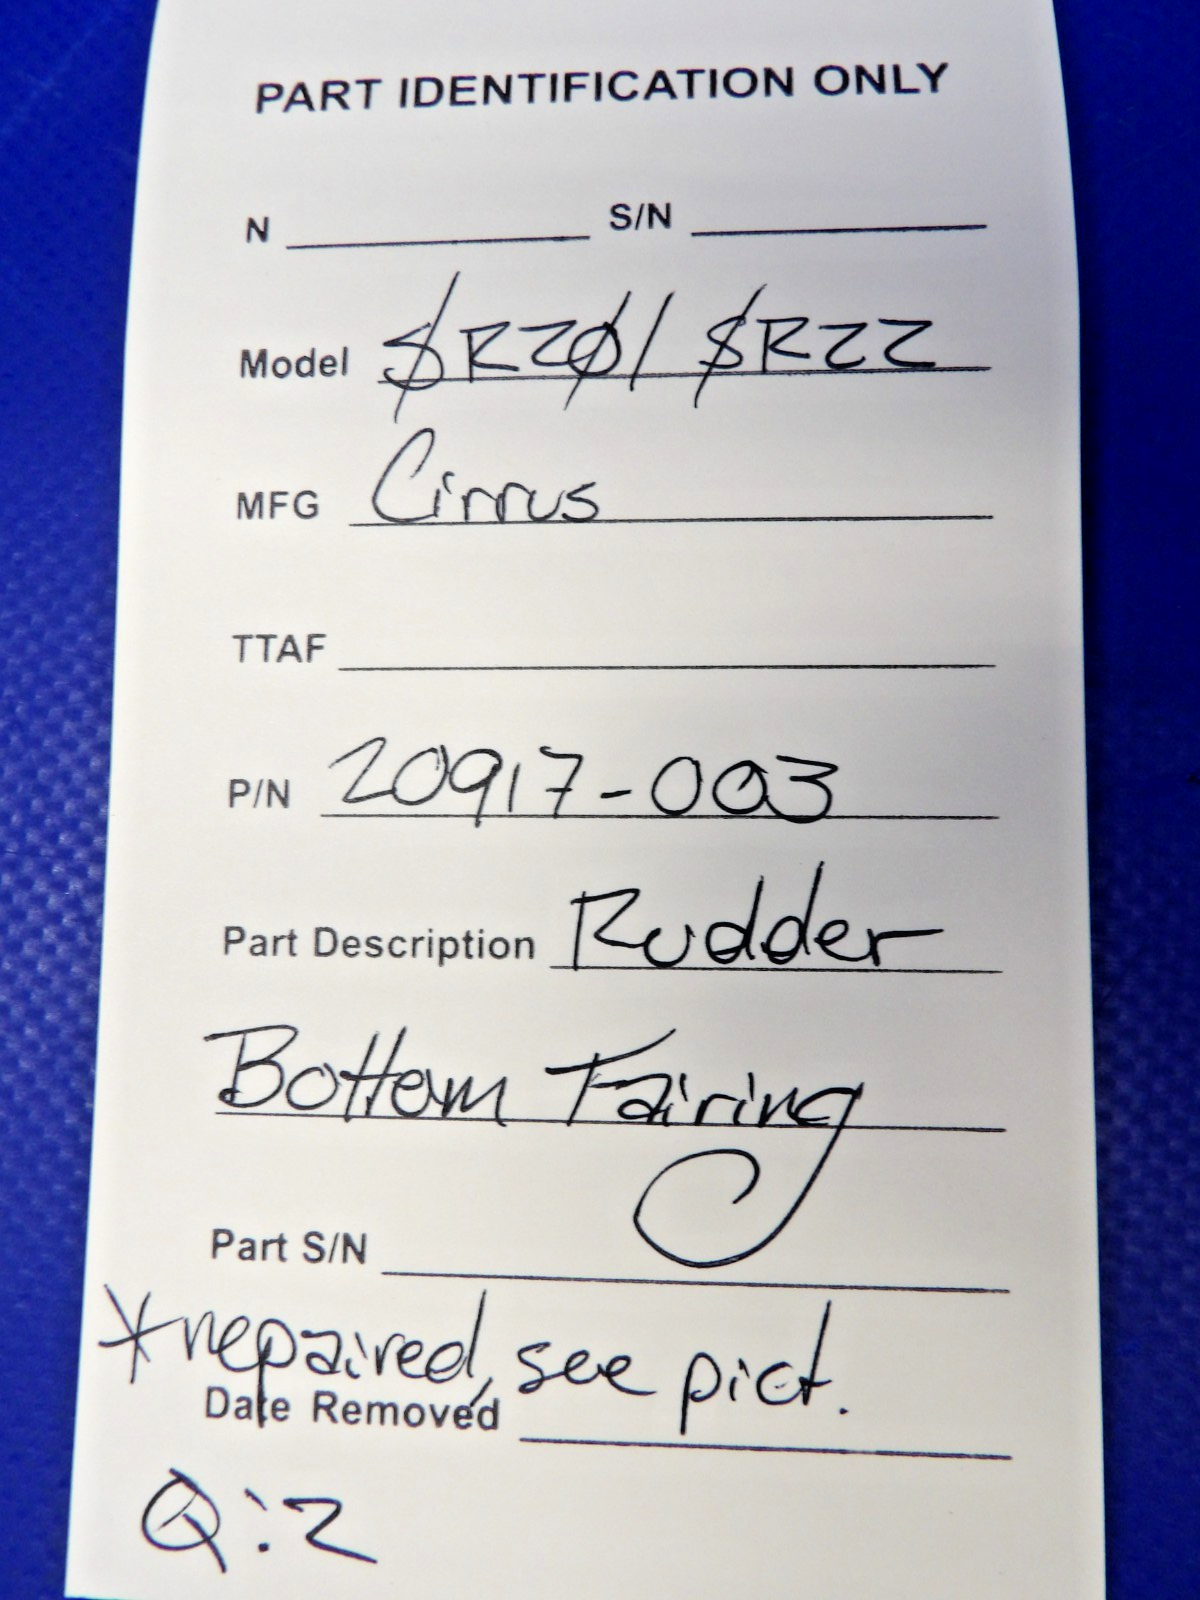 PART IDENTIFICATION ONLY
N S/N
Model SR20/SR22
MFG Cirrus
TTAF
P/N 20917-003
Part Description Rudder
Bottom Fairing
Part S/N
*repaired, see pict.
Date Removed
Q:2